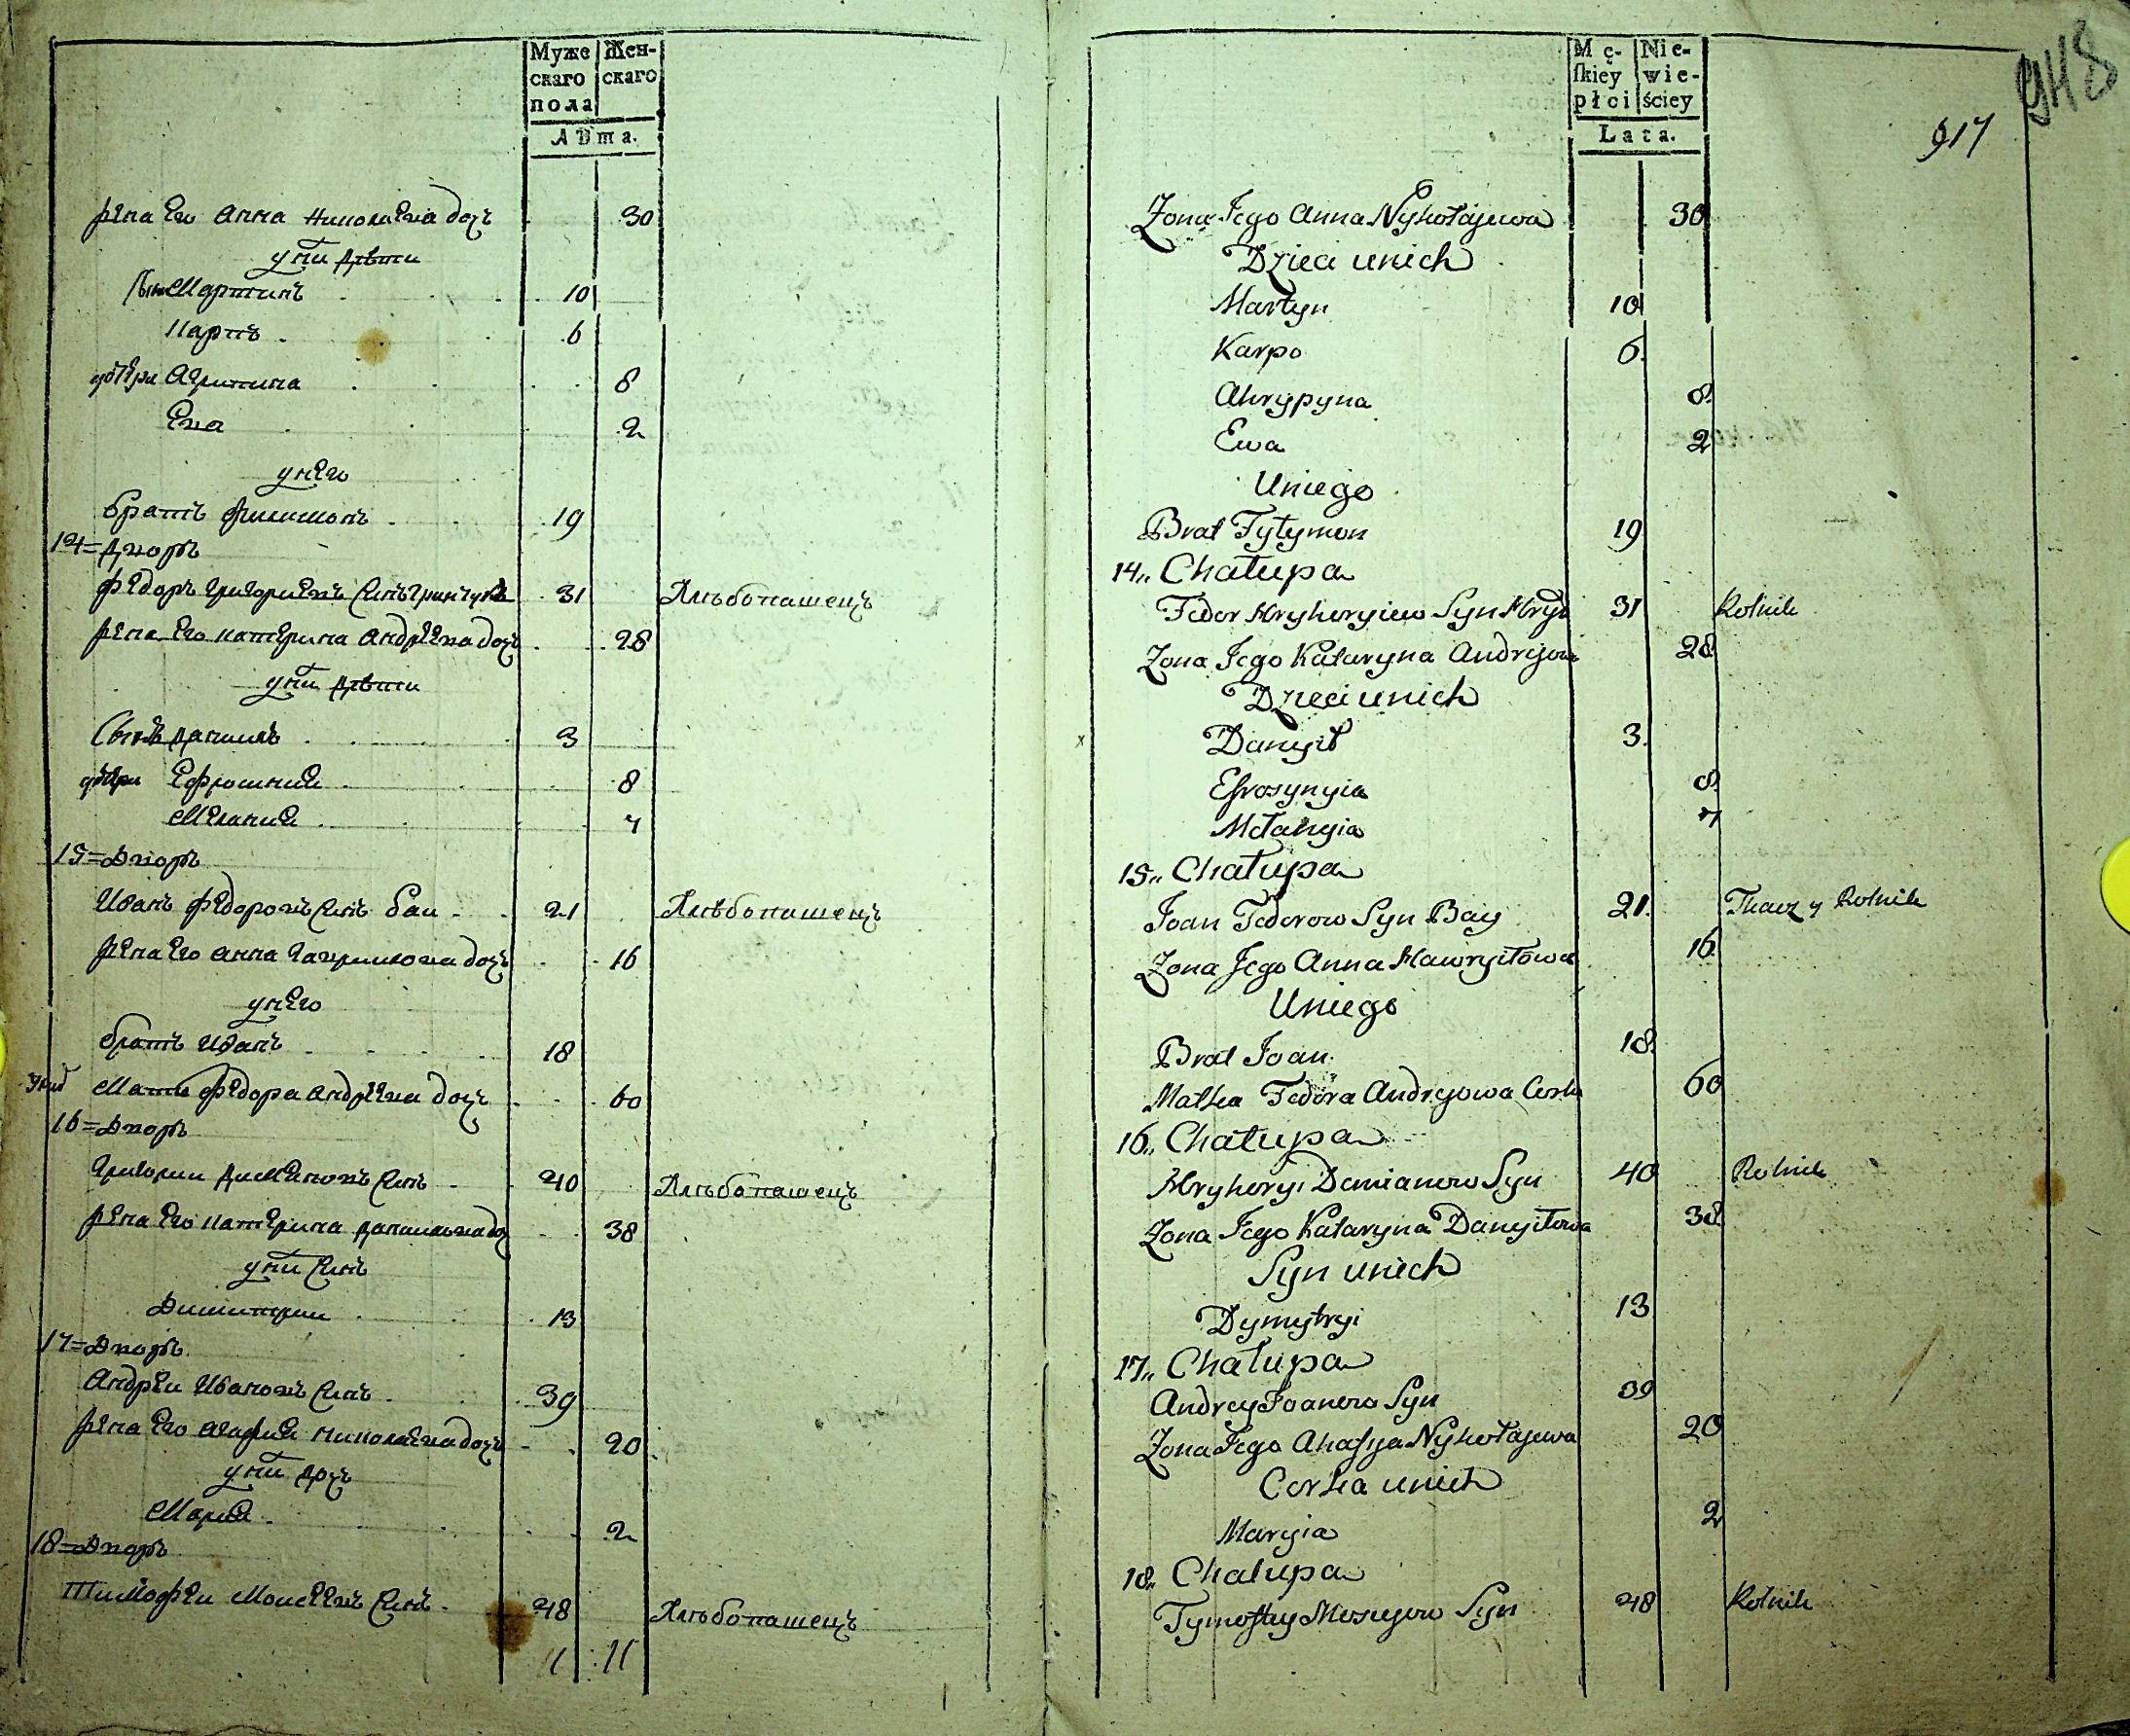 Муже
скаго
пола
Жен-
скаго
Лѣта.
жена Его Анна Николаева дочь
у них дѣти
сын Мартинъ 10
Карпъ 6
дочери Агрипина 8
Ева 2
у него
братъ Филимонъ 19
14=Дворъ
Федоръ Григориевъ синъ Гринчукъ 31 Хлѣбопашецъ
жена Его Катерина Андреева дочь 28
у них дѣти
Сынъ Данилъ 3
дочери Ефросиния 8
Мелания 7
15=Дворъ
Иванъ Федоровъ синъ Баи 21 Хлѣбопашецъ
жена Его Анна Гаврилова дочь 16
у него
братъ Иванъ 18
Мать Федора Андреева дочь 60
16=Дворъ
Григории Дамяновъ синъ 40 Хлѣбопашецъ
жена Его Катерина Данилова до 38
у них синъ
Димитрии 13
17=Дворъ
Андреи Ивановъ синъ 39
жена Его Агафия Николаева дочь 20
у них дочь
Мария 2
18=Дворъ
Тимофеи Моисеевъ синъ 48 Хлѣбопашецъ
11 11
Mę-
ſkiey
płci
Nie-
wie-
ściey
Lata.
948
917
Zona Jego Anna Nykołajewa 30
Dzieci unich
Martyn 10
Karpo 6
Ahrypyna 8
Ewa 2
Uniego
Brat Fyłymon 19
14„ Chałupa
Fedor Hryhoryiew Syn Hryń 31 Rolnik
Zona Jego Kataryna Andrejowa 28
Dzieci unich
Danyił 3
Efrosynyia 8
Mełanyia 7
15„ Chałupa
Joan Fedorow Syn Bay 21 Tkacz y Rolnik
Zona Jego Anna Hawryiłowa 16
Uniego
Brat Joan 18
Matka Fedora Andrejowa Corka 60
16„ Chałupa
Hryhoryi Demianow Syn 40 Rolnik
Zona Jego Kataryna Danyiłowa 38
Syn unich
Dymytryi 13
17„ Chałupa
Andrey Joanow Syn 39
Zona Jego Ahafya Nykołajewa 20
Corka unich
Maryia 2
18„ Chałupa
Tymofiey Mosiejow Syn 48 Rolnik